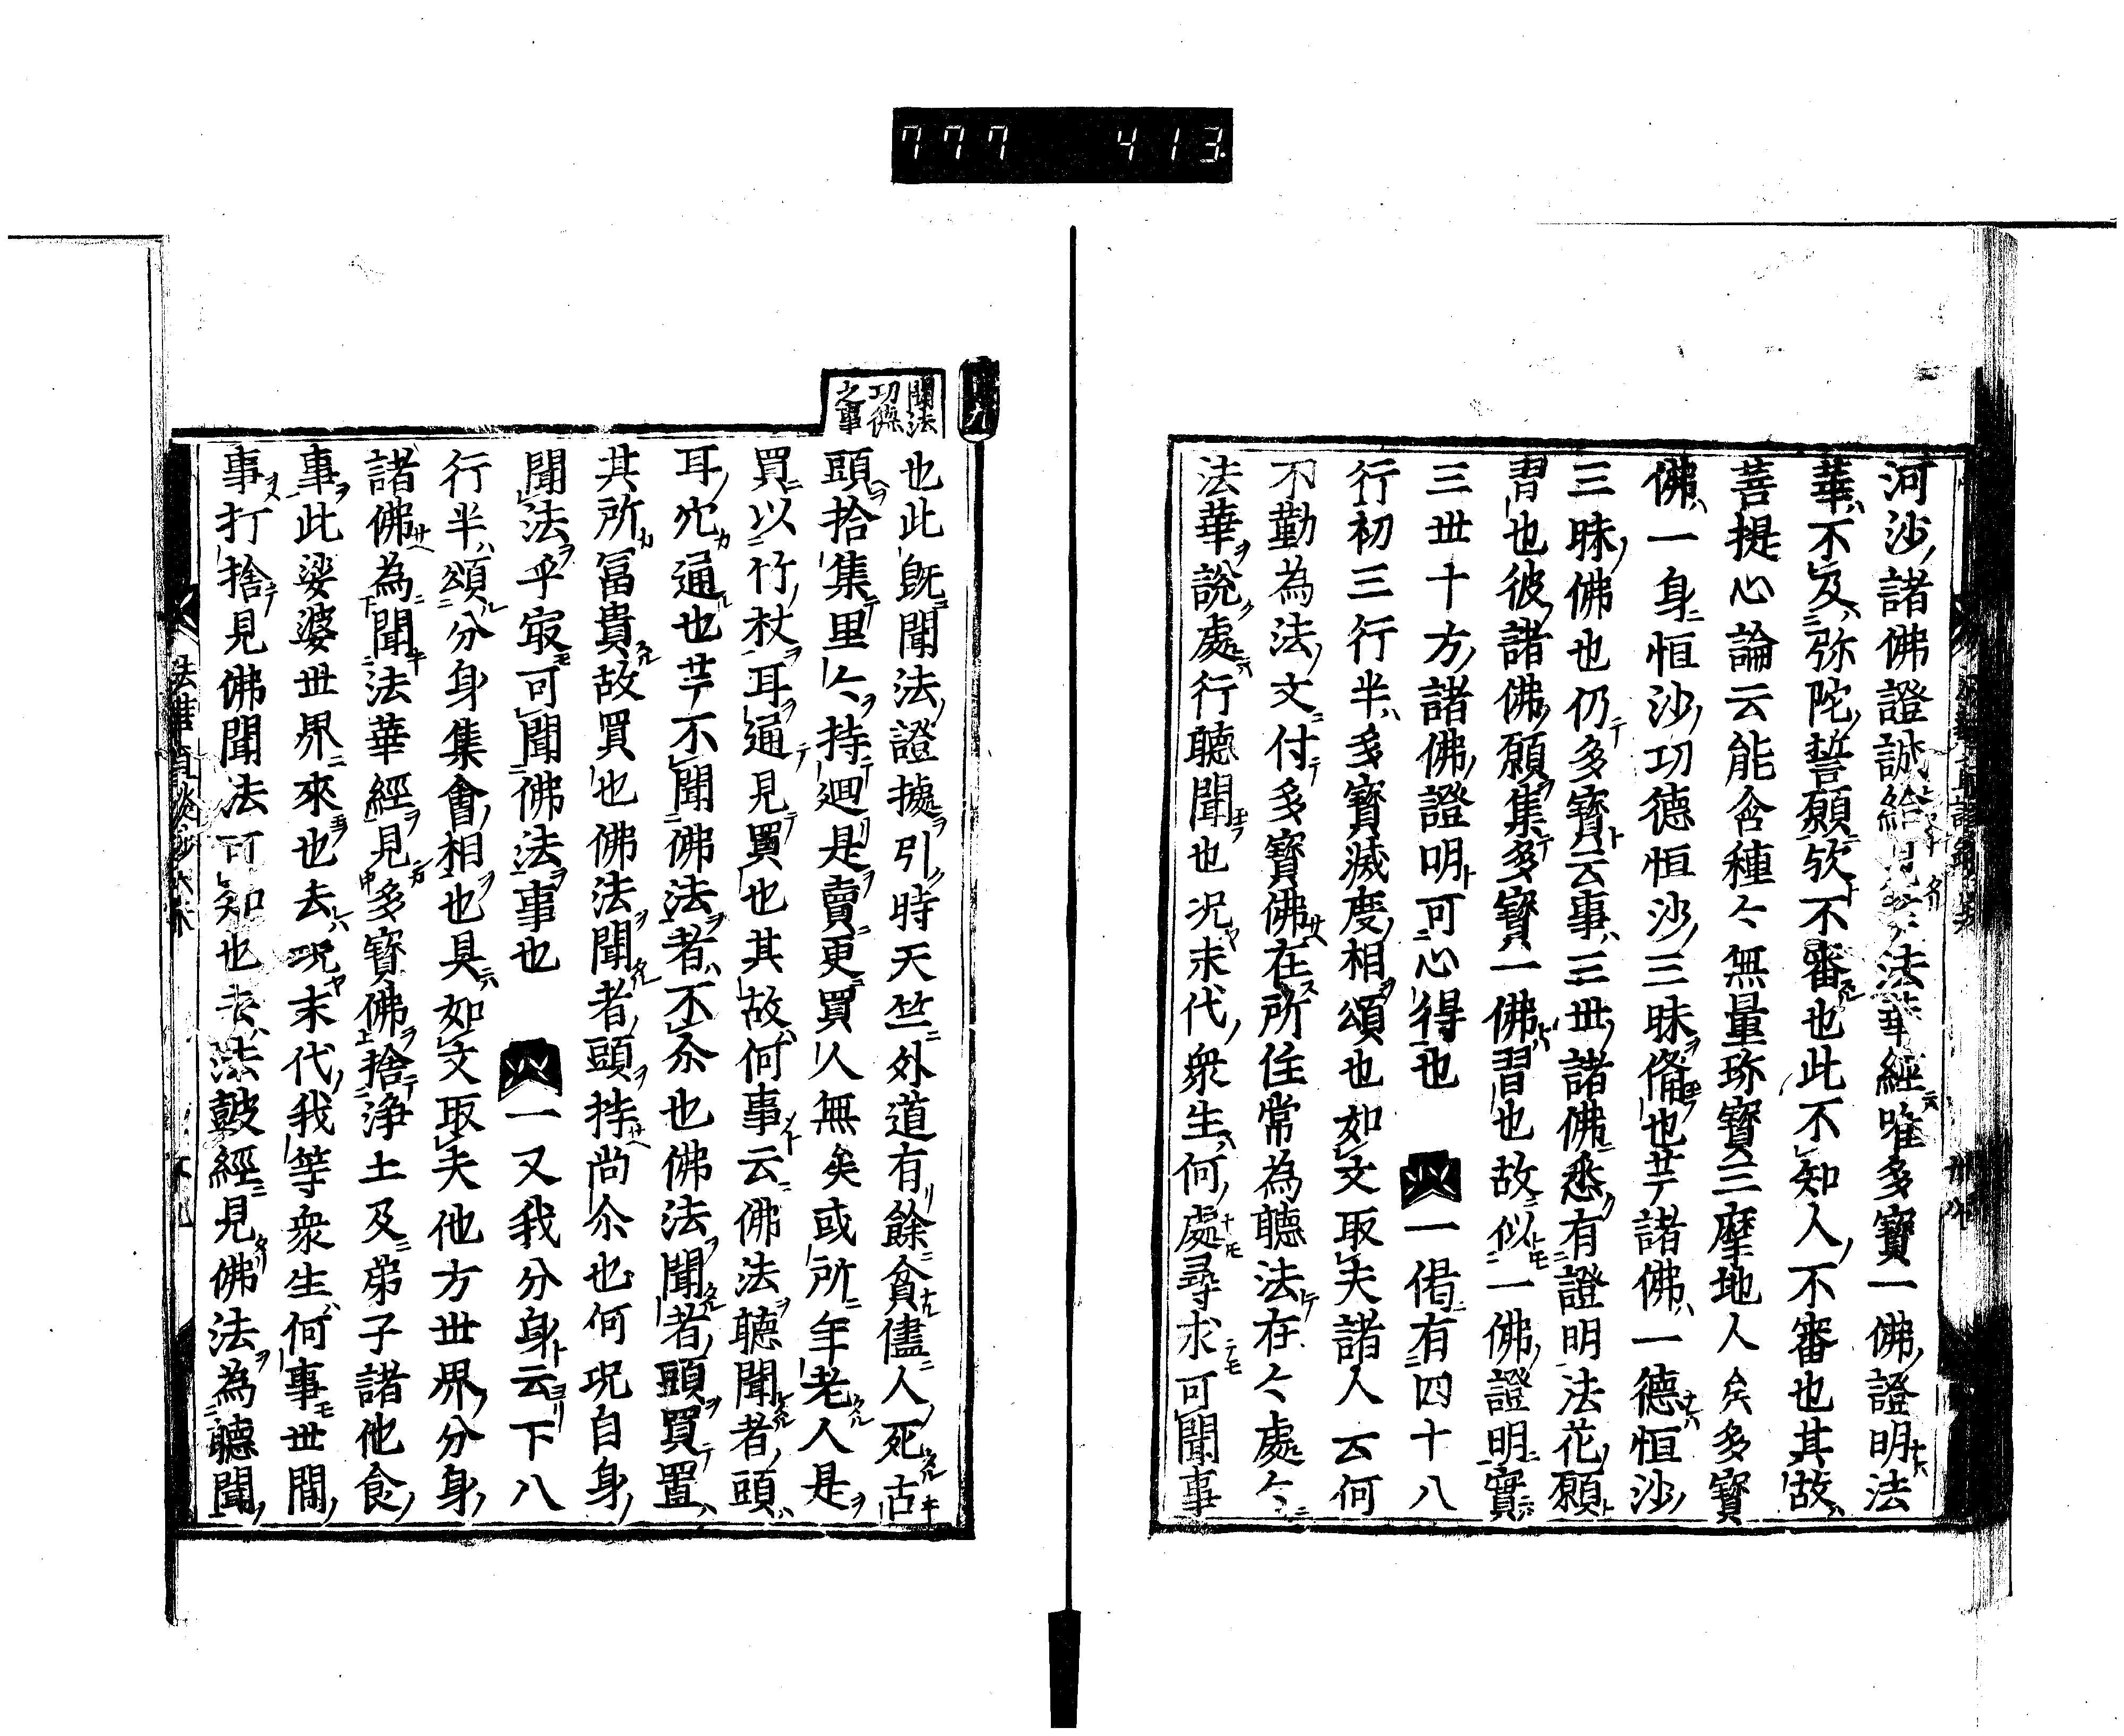 777 413
河沙諸佛證誠給法華經唯多寶一佛證明法
華不及弥陀誓願欤不審也此不知人不審也其故
菩提心論云能含種々無量珎寶三摩地人矣多寶
佛一身恒沙功德恒沙三昧俻也䒑諸佛一德恒沙
三昧佛也仍多寶云事三世諸佛悉有證明法花願
習也彼諸佛願集多寶一佛習也故似一佛證明實
三世十方諸佛證明可心得也 一偈有四十八
行初三行半多寶滅度相頌也如文取夫諸人云何
不勤為法文付多寶佛在所住常為聽法在々處々
法華說處行聽聞也况末代衆生何處尋求可聞事
聞法
功德
之事
也此既聞法證據引時天竺外道有餘貧儘人死古
頭拾集里々持廻是賣更買人無矣或所年老人是
買以竹杖耳通見買也其故何事云佛法聽聞者頭
耳穴通也䒑不聞佛法者不尒也佛法聞者頭買置
其所冨貴故買也佛法聞者頭持尚尒也何况自身
聞法乎㝡可聞佛法事也 一又我分身云下八
行半頌分身集會相也具如文取夫他方世界分身
諸佛為聞法華經見多寶佛捨浄土及弟子諸他食
事此娑婆世界來也去况末代我等衆生何事世間
事打捨見佛聞法可知也去法鼓經見佛法為聽聞